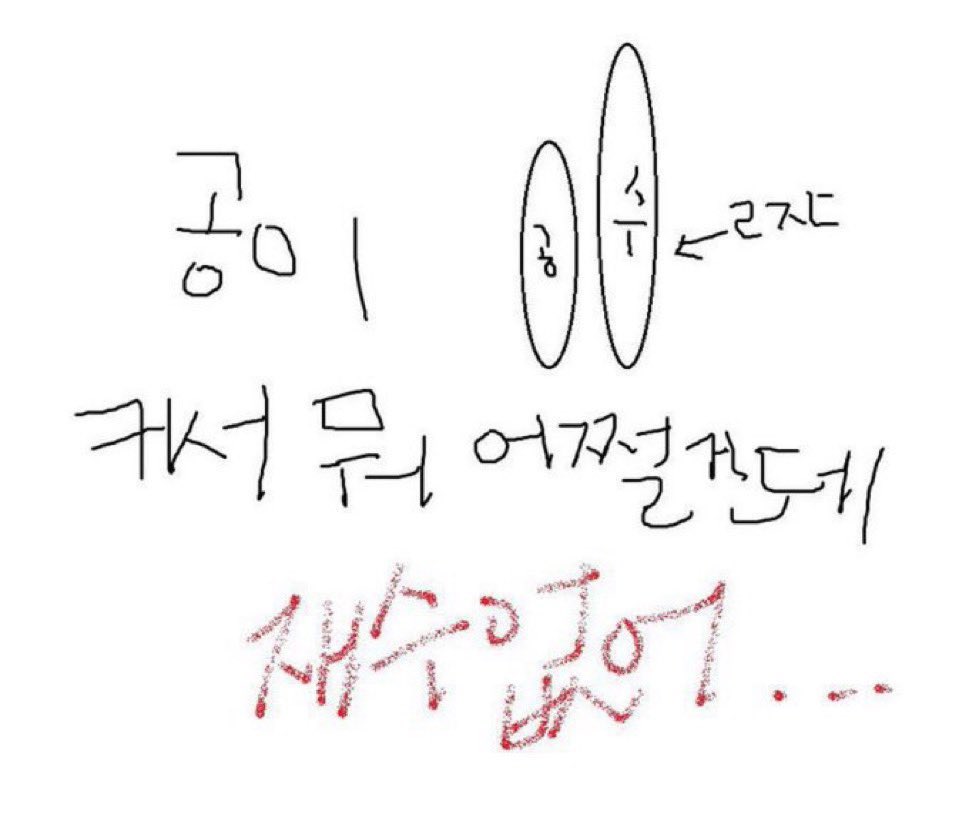 공이
공
수
ㄹ자
커서 뭐 어쩔건데
재수없어...